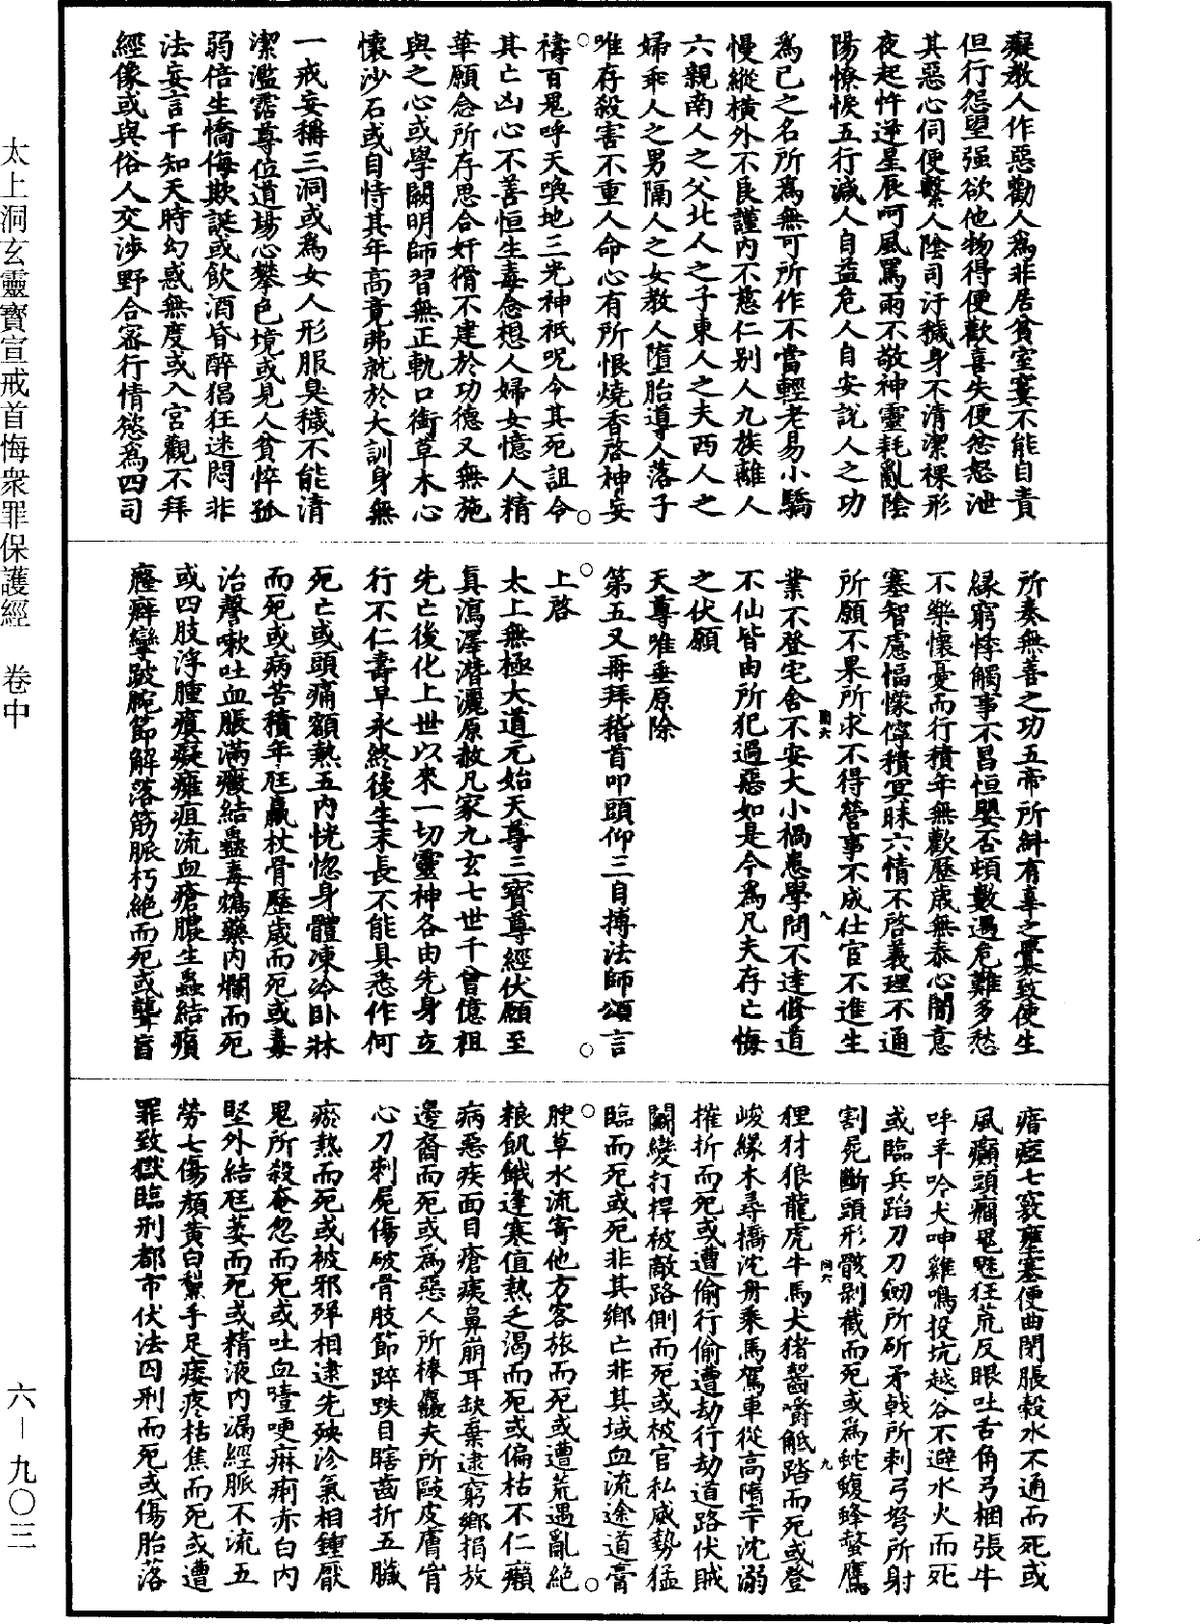 癡教人作惡勸人為非居貧室窶不能自責
但行怨望强欲他物得便歡喜失便忿怒泄
其惡心伺便繫人陰司汙穢身不清潔裸形
夜起忤逆星辰呵風罵雨不敬神靈耗亂陰
陽憭悷五行減人自益危人自安說人之功
為已之名所為無可所作不當輕老易小驕
慢縱橫外不良謹內不慈仁别人九族離人
六親南人之父北人之子東人之夫西人之
婦乖人之男隔人之女教人墮胎導人落子
唯存殺害不重人命心有所恨燒香啓神妄
禱百鬼呼天喚地三光神祇呪令其死詛令
其亡凶心不善恒生毒念想人婦女憶人精
華願念所存思合奸猾不建於功德又無施
與之心或學闕明師習無正軌口銜草木心
懷沙石或自恃其年高竟弗就於大訓身無
一戒妄稱三洞或為女人形服臭穢不能清
潔濫霑尊位道場心攀色境或見人貧悴孤
弱倍生憍侮欺誕或飲酒昏醉猖狂迷悶非
法妄言干知天時幻惑無度或入宮觀不拜
經像或與俗人交渉野合密行情慾為四司
所奏無善之功五帝所糾有辜之釁致使生
緣窮悴觸事不昌恒嬰否頓數遇危難多愁
不樂懷憂而行積年無歡歷歲無泰心闇意
塞智慮愊懞儜積冥昧六情不啓義理不通
所願不果所求不得營事不成仕官不進生
業不登宅舍不安大小禍患學問不達修道
不仙皆由所犯過惡如是今為凡夫存亡悔
之伏願
天尊唯垂原除
第五又再拜稽首叩頭仰三自搏法師頌言
上啓
太上無極大道元始天尊三寶尊經伏願至
真瀉澤潛灑原赦凡家九玄七世千曾億祖
先亡後化上世以來一切靈神各由先身立
行不仁壽早永終後生未長不能具悉作何
死亡或頭痛額熱五內恍惚身體凍冷卧牀
而死或病苦積年尫羸杖骨歷歲而死或毒
治謦嗽吐血脹滿癥結蠱毒鴆藥內爛而死
或四肢浮腫瘨癡癰疽流血瘡膿生蟲結癀
癃癖攣跛腕節解落筋脈朽絕而死或聾盲
瘖瘂七竅壅塞便曲閉脹穀水不通而死或
風癲頭癎鬼魅狂荒反眼吐舌角弓梱張牛
呼羊吟犬呻雞鳴投坑越谷不避水火而死
或臨兵蹈刀刀劒所斫矛戟所刺弓弩所射
割屍斷頭形骸剝截而死或為蛇蝮蜂螫鷹
狸犲狼龍虎牛馬犬猪齧嚼觝踏而死或登
峻緣木尋橋沈舟乘馬駕車從高墮㐄沈溺
摧折而死或遭偷行偷遭劫行劫道路伏賊
鬭變打捍被敵路側而死或被官私威勢猛
臨而死或死非其鄉亡非其域血流途道膏
腴草水流寄他方客旅而死或遭荒遇亂絕
粮飢餓逢寒值熱乏渴而死或偏枯不仁癩
病惡疾面目瘡痍鼻崩耳缺棄逮窮鄉捐放
邊裔而死或為惡人所棒麤夫所毆皮膚胔
心刀刺屍傷破骨肢節踤跌目瞎齒折五臟
瘀熱而死或被邪殍相逮先殃沴氣相鍾厭
鬼所殺奄忽而死或吐血噎哽痳痢赤白內
堅外結尫萎而死或精液內漏經脈不流五
勞七傷顏黃白黧手足痿疼枯焦而死或遭
罪致獄臨刑都市伏法囚刑而死或傷胎落
太上洞玄靈寶宣戒首悔衆罪保護經　卷中
六—九〇三